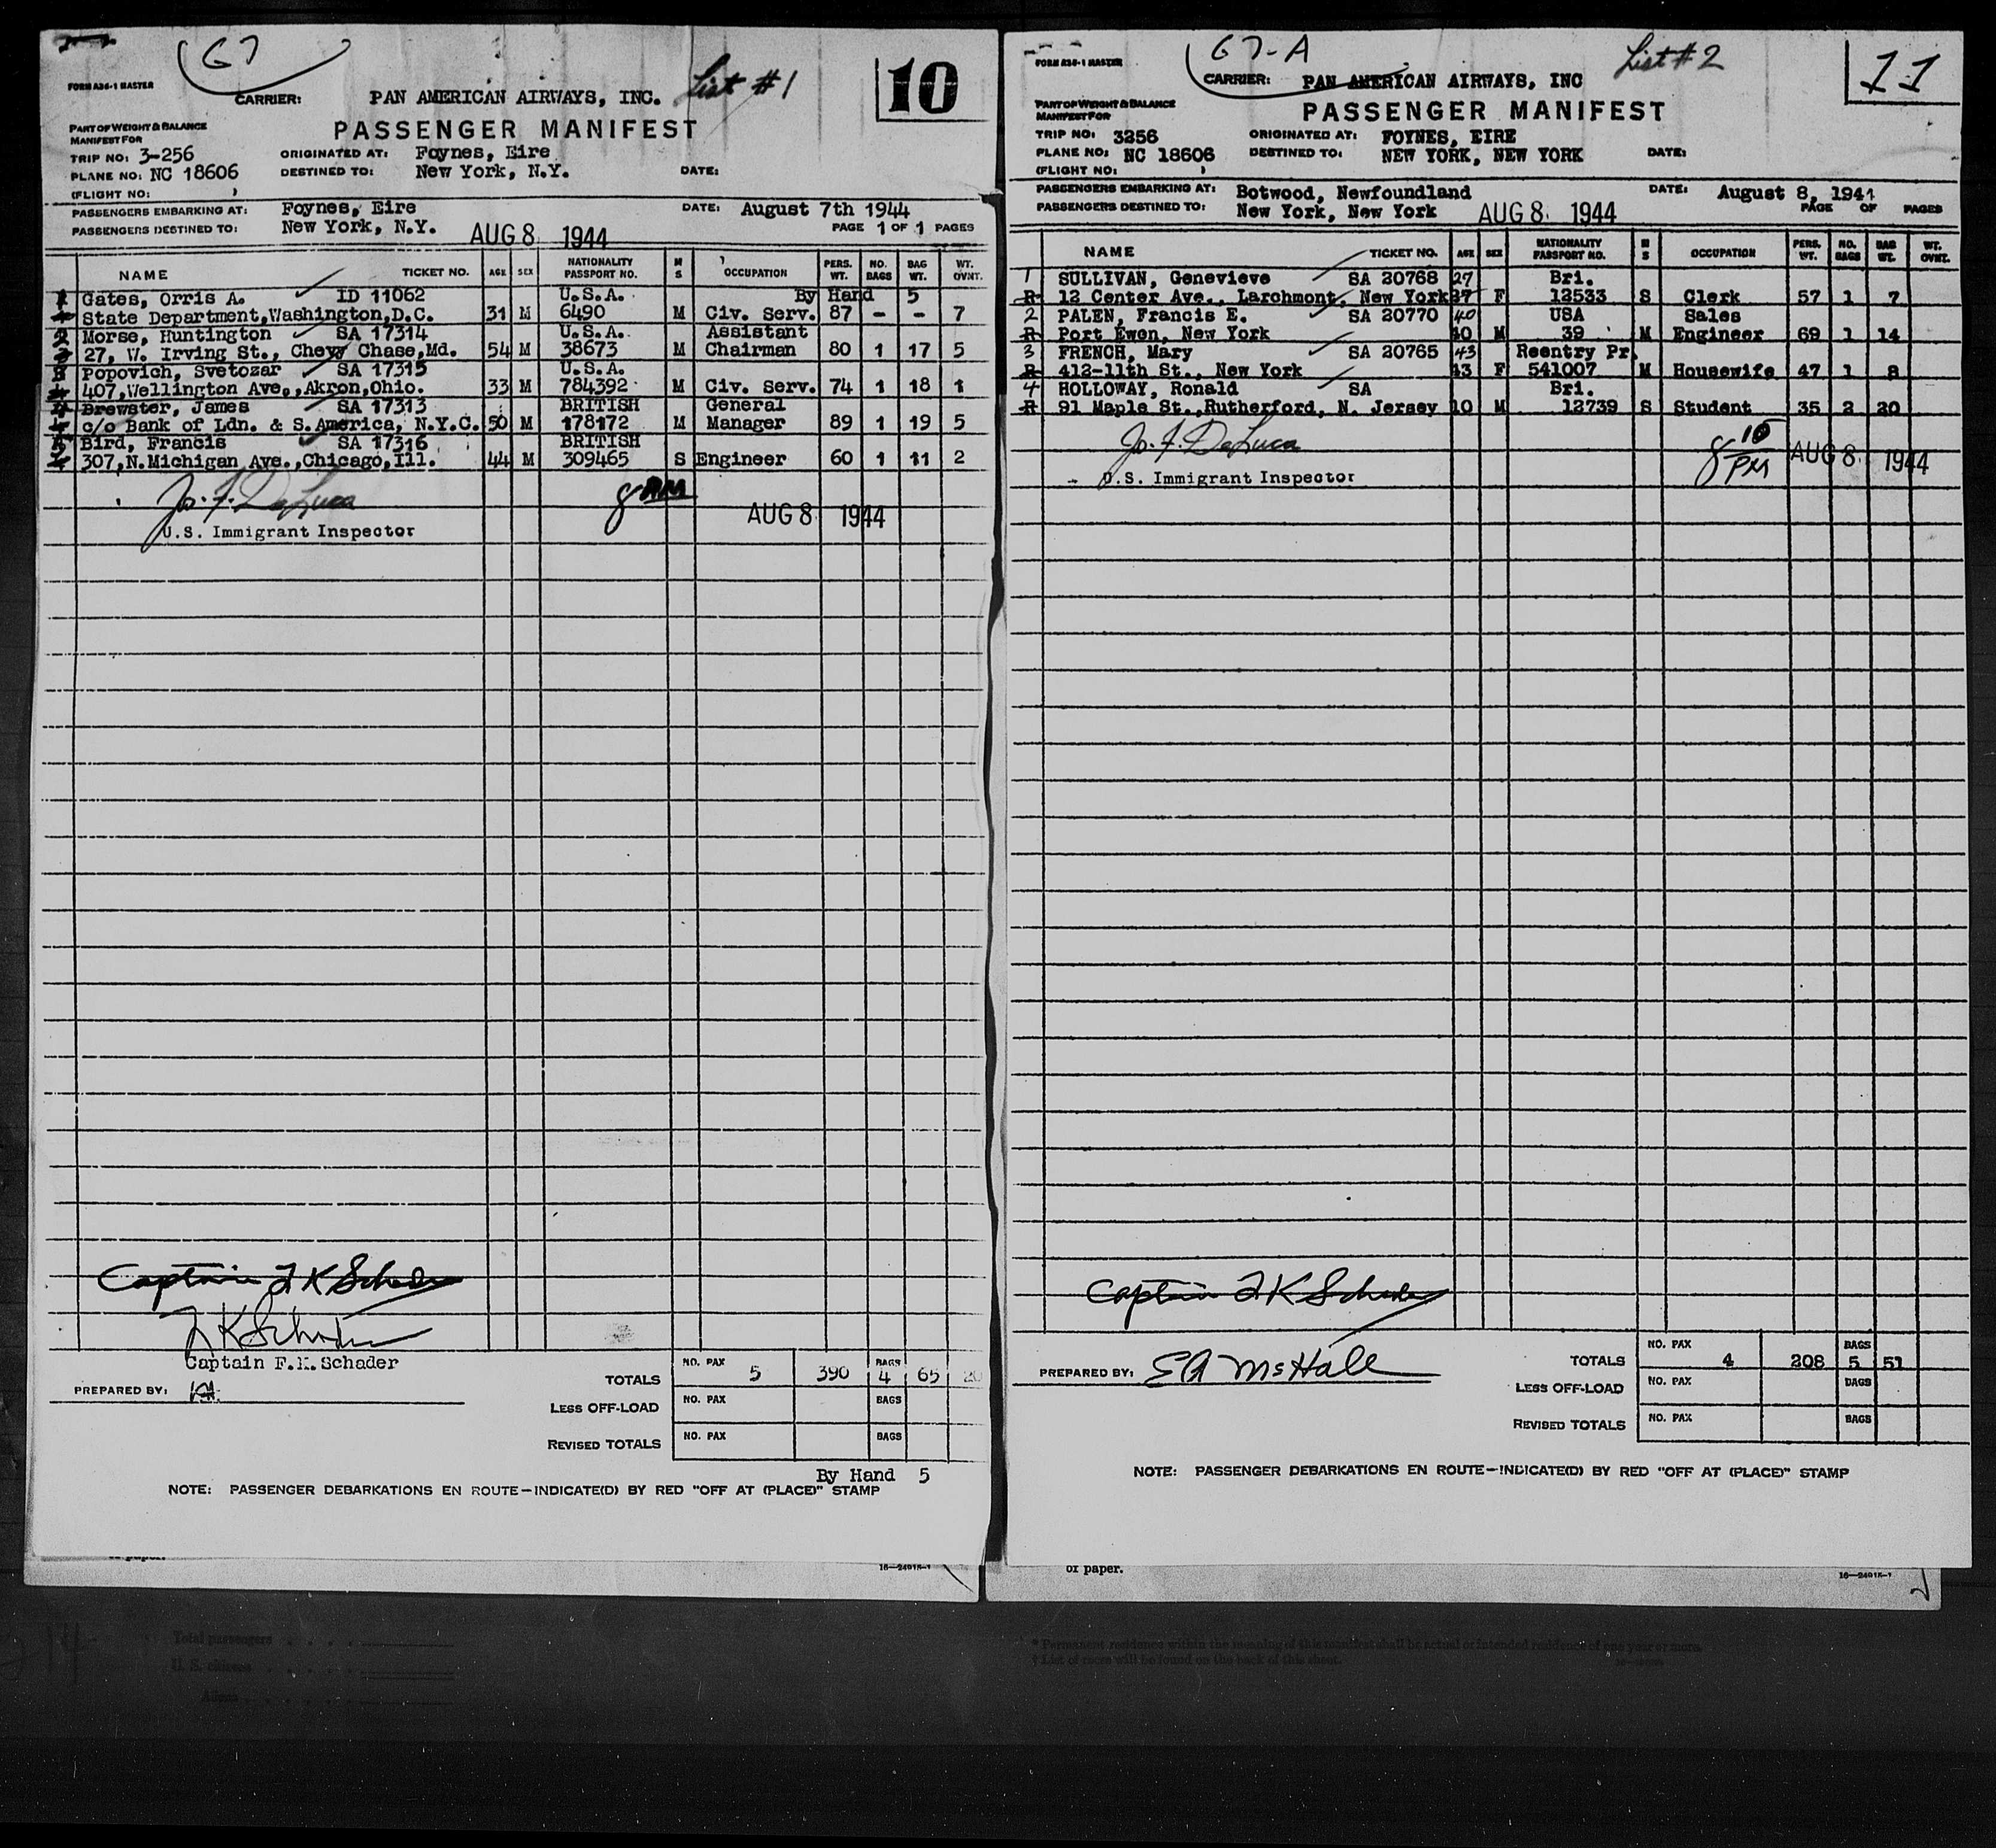 67
List #1
10
FORM A36-1 MASTER
CARRIER: PAN AMERICAN AIRWAYS, INC.
PART OF WEIGHT & BALANCE
MANIFEST FOR
PASSENGER MANIFEST
TRIP NO: 3-256 ORIGINATED AT: Foynes, Eire
PLANE NO: NC 18606 DESTINED TO: New York, N.Y. DATE:
(FLIGHT NO: )
PASSENGERS EMBARKING AT: Foynes, Eire DATE: August 7th 1944
PASSENGERS DESTINED TO: New York, N.Y. AUG 8 1944 PAGE 1 OF 1 PAGES
NAME TICKET NO. AGE SEX NATIONALITY PASSPORT NO. M S OCCUPATION PERS. WT. NO. BAGS BAG WT. WT. OVNT.
1 Gates, Orris A. ID 11062 U.S.A. By Hand 5
State Department, Washington, D.C. 31 M 6490 M Civ. Serv. 87 - - 7
2 Morse, Huntington SA 17314 U.S.A. Assistant
27, W. Irving St., Chevy Chase, Md. 54 M 38673 M Chairman 80 1 17 5
3 Popovich, Svetozar SA 17315 U.S.A.
407, Wellington Ave., Akron, Ohio. 33 M 784392 M Civ. Serv. 74 1 18 1
4 Brewster, James SA 17313 BRITISH General
c/o Bank of Ldn. & S. America, N.Y.C. 50 M 178172 M Manager 89 1 19 5
5 Bird, Francis SA 17316 BRITISH
307, N. Michigan Ave., Chicago, Ill. 44 M 309465 S Engineer 60 1 11 2
Jo. F. DeLuca
8 PM
AUG 8 1944
U.S. Immigrant Inspector
Captain F K Schader
F K Schader
Captain F.K. Schader
PREPARED BY:
TOTALS NO. PAX 5 390 BAGS 4 65 20
LESS OFF-LOAD NO. PAX BAGS
REVISED TOTALS NO. PAX BAGS
By Hand 5
NOTE: PASSENGER DEBARKATIONS EN ROUTE—INDICATE(D) BY RED "OFF AT (PLACE)" STAMP
of paper.
16—24915-1
67-A
List #2
11
FORM A36-1 MASTER
CARRIER: PAN AMERICAN AIRWAYS, INC
PART OF WEIGHT & BALANCE
MANIFEST FOR
PASSENGER MANIFEST
TRIP NO: 3256 ORIGINATED AT: FOYNES, EIRE
PLANE NO: NC 18606 DESTINED TO: NEW YORK, NEW YORK DATE:
(FLIGHT NO: )
PASSENGERS EMBARKING AT: Botwood, Newfoundland DATE: August 8, 1944
PASSENGERS DESTINED TO: New York, New York AUG 8 1944 PAGE OF PAGES
NAME TICKET NO. AGE SEX NATIONALITY PASSPORT NO. M S OCCUPATION PERS. WT. NO. BAGS BAG WT. WT. OVNT.
1 SULLIVAN, Genevieve SA 20768 27 Bri.
R 12 Center Ave., Larchmont, New York 27 F 12533 S Clerk 57 1 7
2 PALEN, Francis E. SA 20770 40 USA Sales
R Port Ewen, New York 40 M 39 M Engineer 69 1 14
3 FRENCH, Mary SA 20765 43 Reentry Pr.
R 412-11th St., New York 43 F 541007 M Housewife 47 1 8
4 HOLLOWAY, Ronald SA Bri.
R 91 Maple St., Rutherford, N. Jersey 10 M 12739 S Student 35 2 20
Jo. F. DeLuca
8 10 PM AUG 8 1944
U.S. Immigrant Inspector
Captain F K Schader
PREPARED BY: E A McHale
TOTALS NO. PAX 4 208 BAGS 5 51
LESS OFF-LOAD NO. PAX BAGS
REVISED TOTALS NO. PAX BAGS
NOTE: PASSENGER DEBARKATIONS EN ROUTE—INDICATE(D) BY RED "OFF AT (PLACE)" STAMP
of paper.
16—24915-1
Total passengers
U. S. citizens
Aliens
* Permanent residence within the meaning of this manifest shall be actual or intended residence of one year or more.
† List of races will be found on the back of this sheet.